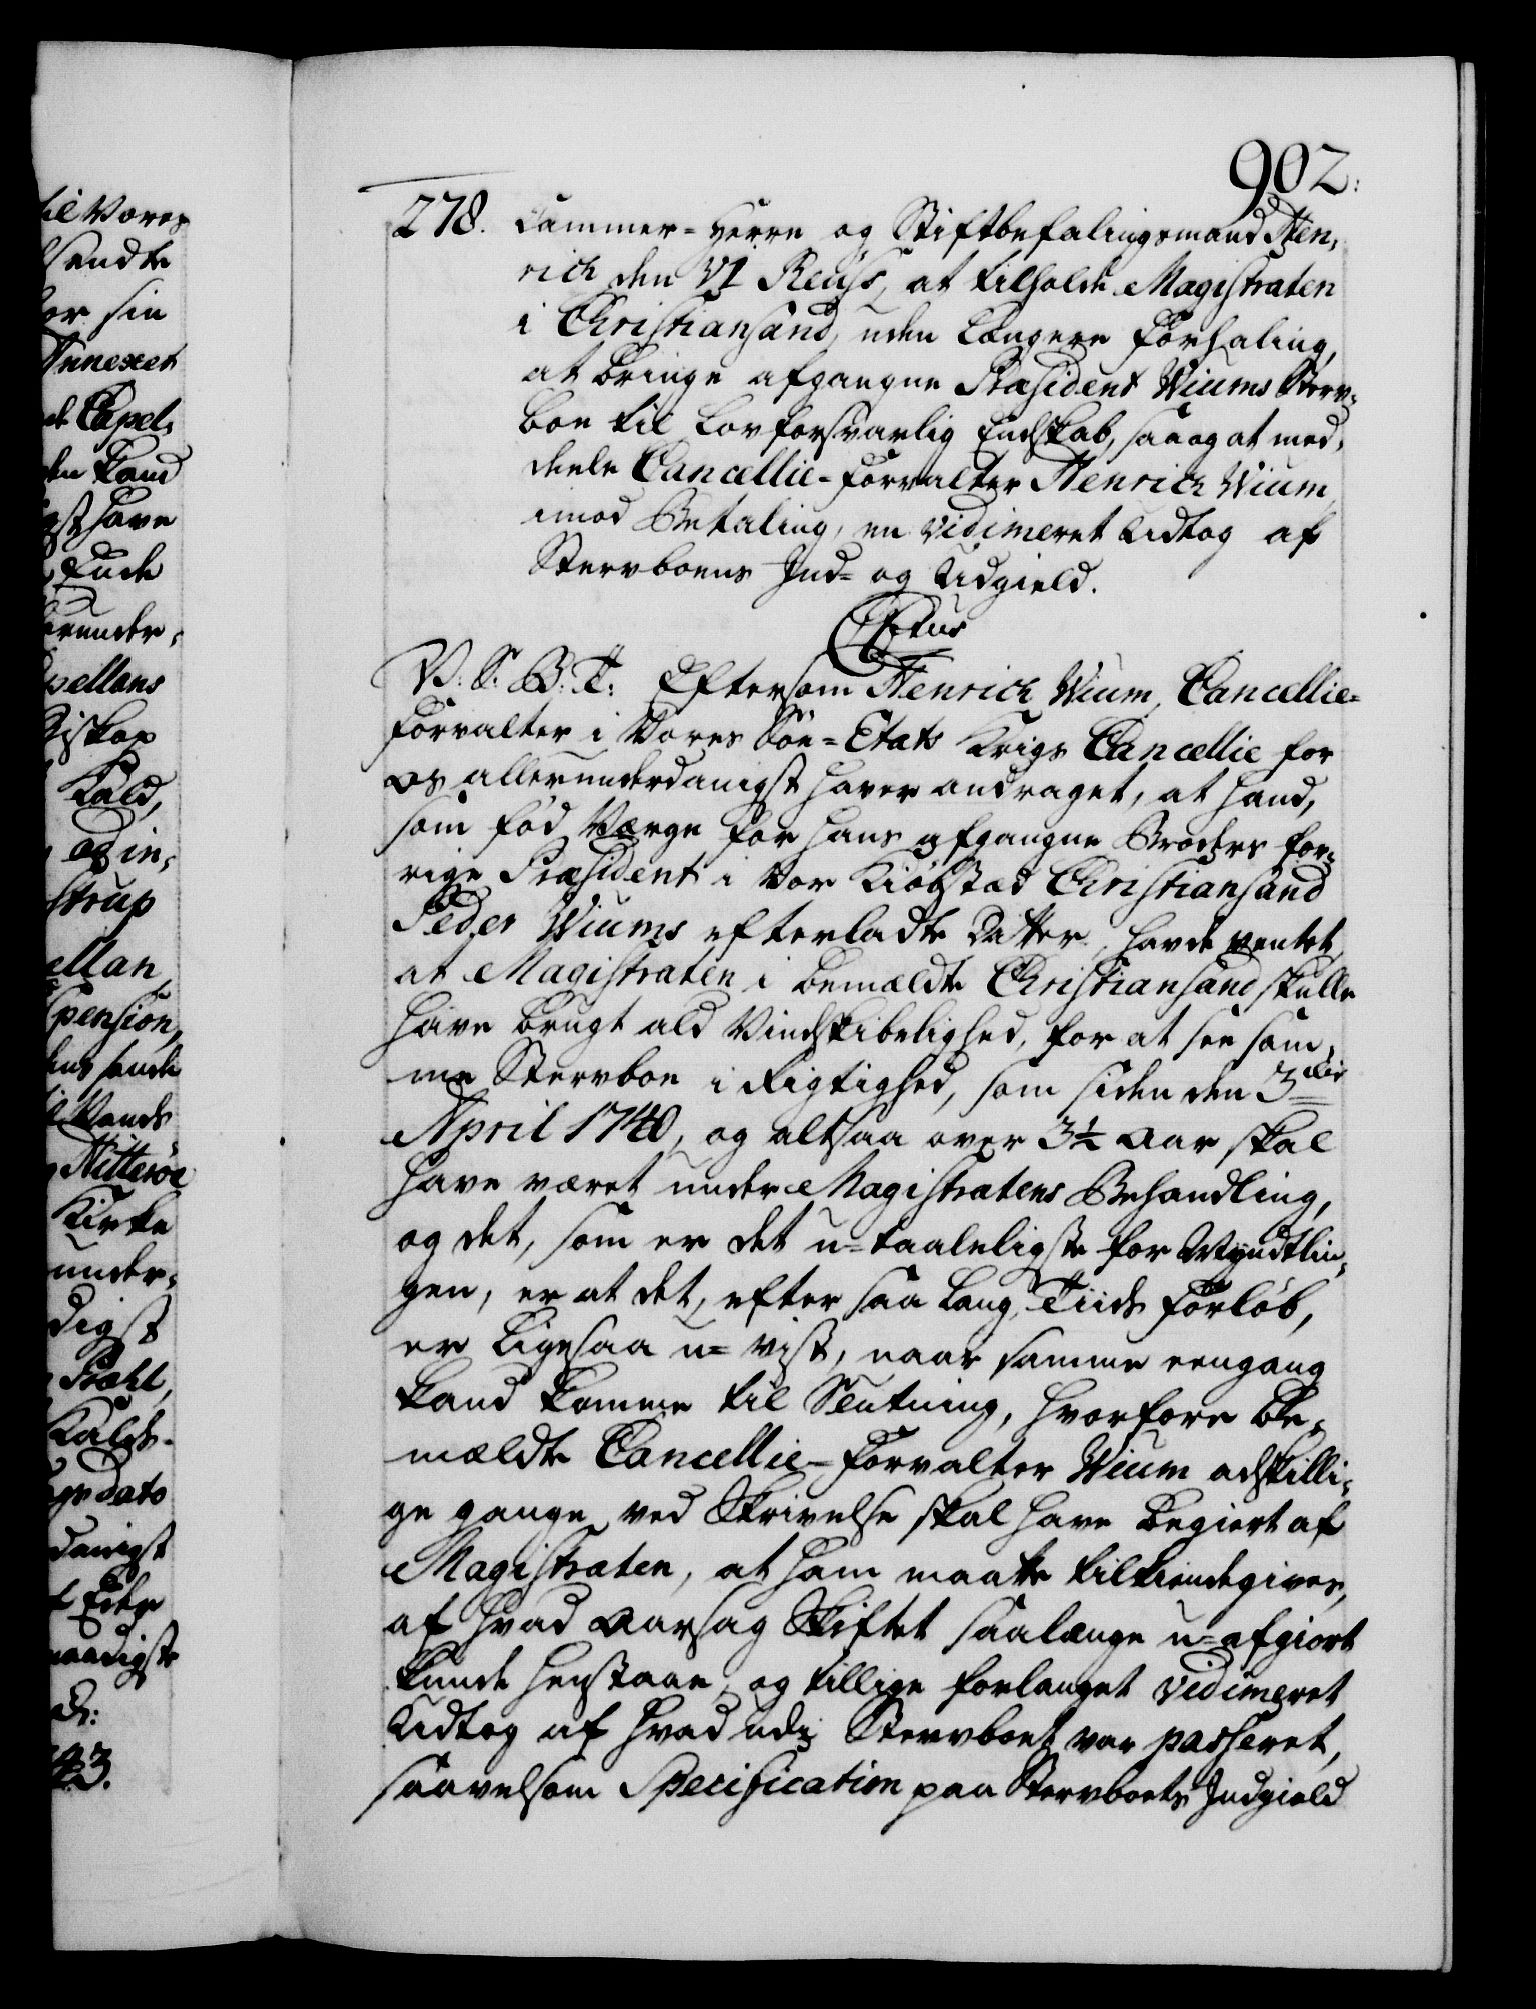 til Vores
sendte
for sin
Annexet
de Capel-
den kand
have
Ende
under-
pellans
Biskop
Kald,
og in-
strup
ellan
pension,
sende
Vands
Nitterøe
Kirke
under-
digst
Præht,
Kalds-
dato
danigst
naadigste
43.
902:
278. Cammer-Herre og Stiftbefalingsmand Hen-
rich den VI Reuss, at tilholde Magistraten
i Christiansand, uden længere Forhaling,
at bringe afgangne Præsident Wiums Sterv-
boe til lovforsvarlig Endskab, saa og at med-
deele Cancellie-Forvalter Henrich Wium,
imod Betaling, en vidimeret Udtog af
Stervboens Ind- og Udgield.
V: S: B: T: Eftersom Henrich Wium, Cancellie-
Forvalter i Vores Søe-Etats Krigs Cancellie for
Os allerunderdanigst haver andraget, at hand,
som fød Værge for hans afgangne Broders for-
rige Præsident i Vor Kiøbstad Christiansand
Peder Wiums efterladte Datter, havde ventet,
at Magistraten i bemældte Christiansand skulle
have brugt ald Vindskibelighed, for at see sam-
me Stervboe i Rigtighed, som siden den 3die
April 1740, og altsaa over 3½ Aar skal
have været under Magistratens Behandling,
og det, som er det u-taaleligste for Myndtlin-
gen, er at det, efter saa lang Tiids Forløb,
er ligesaa u-vist, naar samme eengang
kand komme til Slutning, hvorfore be-
mældte Cancellie-Forvalter Wium adskilli-
ge gange ved Skrivelse skal have begiert af
Magistraten, at ham maatte tilkiendegives,
af hvad Aarsag Skiftet saalænge u-afgiort
kunde henstaae, og tillige forlanget vidimeret
Udtog af hvad udi Stervboet var passeret,
saavelsom Specification paa Stervboets Indgield